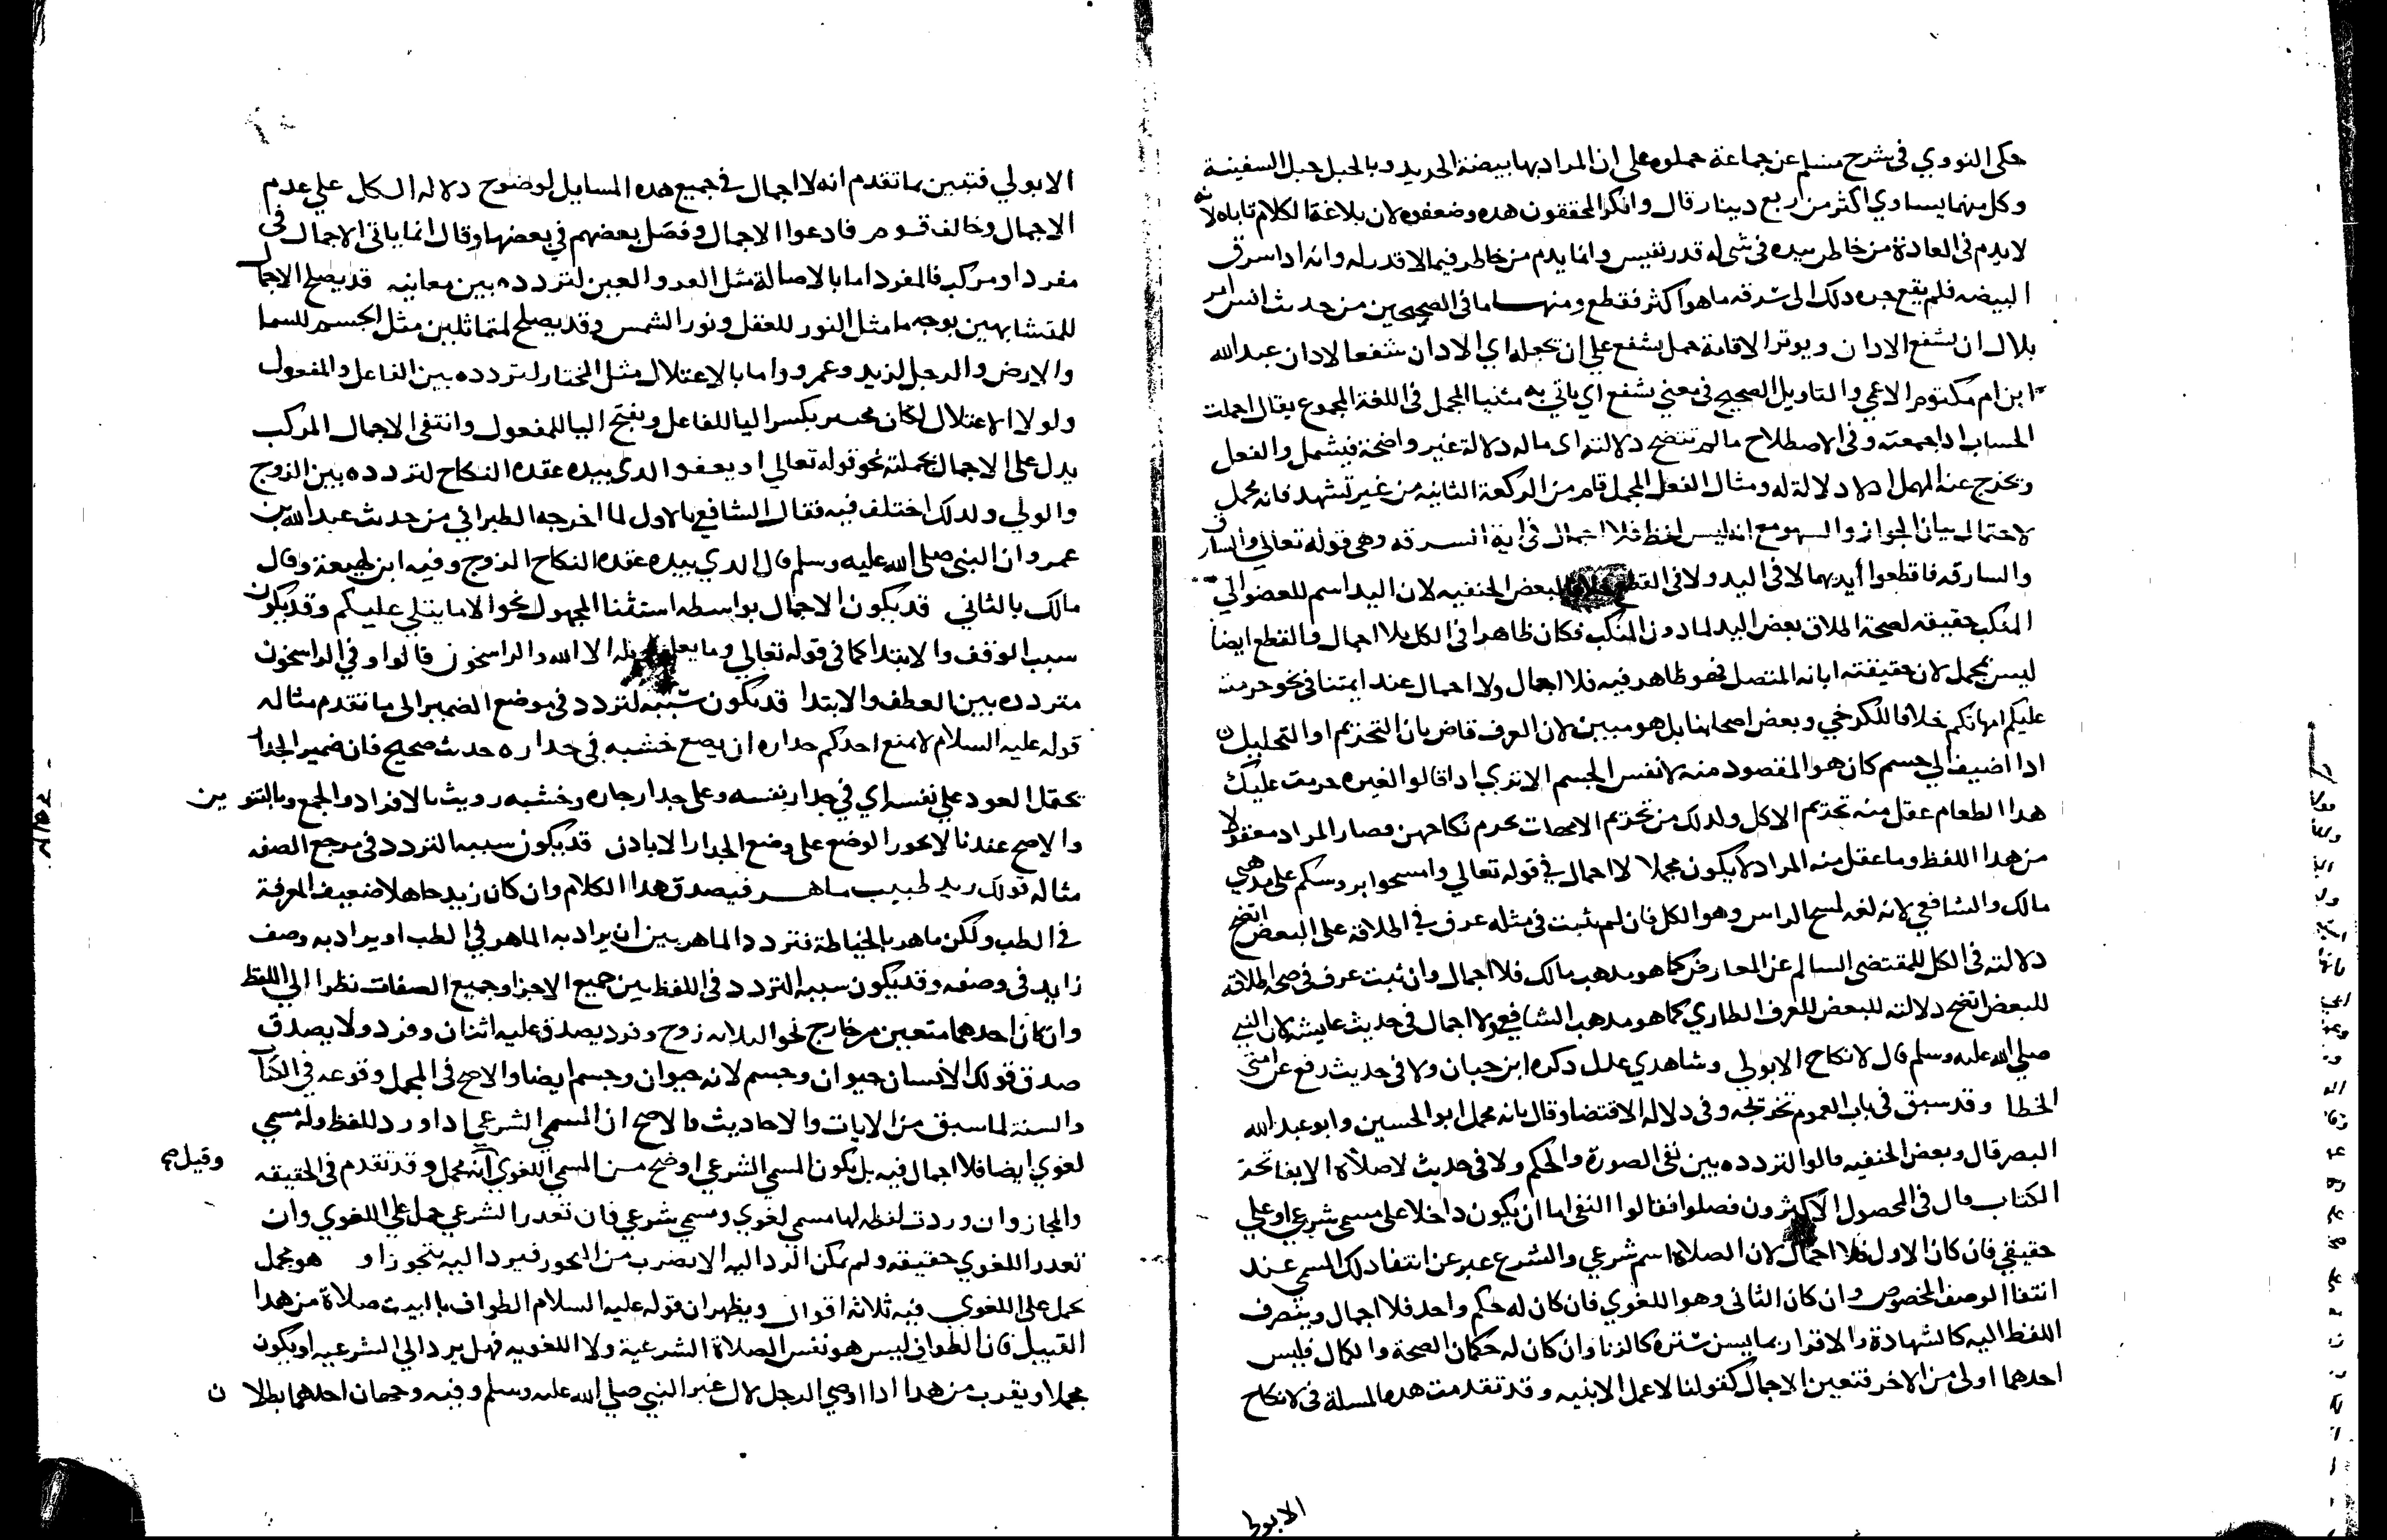 حكى النووي في شرح مسلم عن جماعة حملوه على ان المراد بها بيضة الحديد وبالحبل حبل السفينة
وكل منهما يساوي اكثر من ربع دينار قال وانكر المحققون هذه وضعفوه لان بلاغة الكلام تاباه لانه
لا يذم في العادة من خاطر بيده في شي له قدر نفيس وانما يذم من خاطر فيما لا قدر له وانه اذا سرق
البيضه فلم يقع جره ذلك الى سرقه ما هو اكثر فقطع ومنها ما في الصحيحين من حديث انس امر
بلال ان يشفع الاذان ويوتر الاقامة حمل يشفع علي ان تجعله اي الاذان شفعا لاذان عبد الله
ابن ام مكتوم الاعمي والتاويل الصحيح في معني يشفع اي ياتي به مثنيا المجمل في اللغة المجموع يقال اجملت
الحساب اذا جمعته وفي الاصطلاح ما لم تتضح دلالته اي ما له دلالة غير واضحة فيشمل والفعل
ويخرج عنه المهمل اذ لا دلالة له ومثال الفعل المجمل قام من الركعة الثانيه من غير تشهد فانه محمل
لاحتمال بيان الجواز والسهو مع انه ليس لفظ فلا اجمال في اية السرقه وهي قوله تعالي والسارق
والسارقه فاقطعوا أيديهما لا في اليد ولا في القطع خلافا لبعض الحنفيه لان اليد اسم للعضو الي
المنكب حقيقه لصحة اطلاق بعض اليد لما دون المنكب فكان ظاهرا في الكل بلا اجمال والقطع ايضا
ليس بمجمل لان حقيقته ابانه المتصل فهو ظاهر فيه فلا اجمال ولا اجمال عند ايمتنا في نحو حرمت
عليكم امهاتكم خلافا للكرخي وبعض اصحابنا بل هو مبين لان العرف قاض بان التحريم او التحليل
اذا اضيف الي جسم كان هو المقصود منه لا نفس الجسم الا تري اذا قالوا لغيره حرمت عليك
هذا الطعام عقل منه تحريم الاكل ولذلك من تحريم الامهات يحرم نكاحهن فصار المراد معقولا
من هذا اللفظ وما عقل منه المراد لا يكون مجملا لا اجمال في قوله تعالي وامسحوا بروسكم على مذهبي
مالك والشافعي لانه لغه لمسح الراس وهو الكل فان لم يثبت في مثله عرف في اطلاقه على البعض اتضح
دلالته في الكل للمقتضى السالم عن المعارض كما هو مذهب مالك فلا اجمال وان ثبت عرف في صحه اطلاقه
للبعض اتضح دلالته للبعض للعرف الطاري كما هو مذهب الشافعي ولا اجمال في حديث عايشه لان النبي
صلي الله عليه وسلم قال لا نكاح الا بولي وشاهدي عدل ذكره ابن حبان ولا في حديث رفع عن امتي
الخطا وقد سبق في باب العموم تخريجه وفي دلاله الاقتضا وقال بانه مجمل ابو الحسين وابو عبد الله
البصر قال وبعض الحنفيه قالوا لتردده بين نفى الصورة والحكم ولا في حديث لا صلاة الا بفاتحة
الكتاب قال في المحصول الاكثرون فصلوا فقالوا النفي اما ان يكون داخلا على مسمى شرعي او علي
حقيقي فان كان الاول فلا اجمال لان الصلاة اسم شرعي والشرع عبر عن انتفا ذلك المسمي عند
انتفا الوصف المخصوص وان كان الثاني وهو اللغوي فان كان له حكم واحد فلا اجمال وينصرف
اللفظ اليه كالشهادة والاقرار بما يسن ستره كالزنا وان كان له حكمان الصحة والكمال فليس
احدهما اولى من الاخر فتعين الاجمال كقولنا لا عمل الا بنيه وقد تقدمت هذه المسلة في لا نكاح
الا بولي
الا بولي فتبين بما تقدم انه لا اجمال في جميع هذه المسايل لوضوح دلاله الكل علي عدم
الاجمال وخالف قوم فادعوا الاجمال وفصل بعضهم في بعضها وقال انما ياتي الاجمال في
مفرد او مركب فالمفرد اما بالاصالة مثل القرء والعين لتردده بين معانيه قد يصلح الاجمال
للمتشابهين بوجه ما مثل النور للعقل ونور الشمس وقد يصلح لمتماثلين مثل الجسم للسما
والارض والرجل لزيد وعمرو واما بالاعتلال مثل المختار لتردده بين الفاعل والمفعول
ولولا الاعتلال لكان مختير بكسر اليا للفاعل وبفتح اليا للمفعول وانتفى الاجمال المركب
يدل على الاجمال بجملته نحو قوله تعالي او يعفو الذي بيده عقده النكاح لتردده بين الزوج
والولي ولذلك اختلف فيه فقال الشافعي بالاول لما اخرجه الطبراني من حديث عبد الله بن
عمرو ان النبي صلى الله عليه وسلم قال الذي بيده عقده النكاح الزوج وفيه ابن لهيعة وقال
مالك بالثاني قد يكون الاجمال بواسطه استثنا المجهول نحو الا ما يتلي عليكم وقد يكون
سبب الوقف والابتدا كما في قوله تعالي وما يعلم تاويله الا الله والراسخون قالوا وفي الراسخون
متردده بين العطف والابتدا قد يكون سببه لتردد في موضع الضمير الى ما تقدم مثاله
قوله عليه السلام لا يمنع احدكم جاره ان يضع خشبه في جداره حديث صحيح فان ضمير الجدار
يحتمل العود علي نفسه اي في جدار نفسه وعلى جدار جاره وخشبه رويت بالافراد والجمع وبالتنوين
والاصح عندنا لا يجوز الوضع على وضع الجدار الا باذن قد يكون سببه التردد في مرجع الصفه
مثاله قولك زيد طبيب ماهر فيصدق هذا الكلام وان كان زيد جاهلا ضعيف المعرفة
في الطب ولكن ماهر بالخياطة فتردد الماهر بين ان يراد به الماهر في الطب او يراد به وصف
زايد في وصفه وقد يكون سببه التردد في اللفظ بين جميع الاجزا وجميع الصفات نظرا الي اللفظ
وان كان احدهما متعين من خارج نحو الثلاثه زوج وفرد يصدق عليه اثنان وفرد ولا يصدق
صدق قولك الانسان حيوان وجسم لانه حيوان وجسم ايضا والاصح في المجمل وقوعه في الكتاب
والسنة لما سبق من الايات والاحاديث والاصح ان المسمي الشرعي اذا ورد للفظ وله مسمي
لغوي ايضا فلا اجمال فيه بل يكون المسمي الشرعي اوضح من المسمي اللغوي انه مجمل وقد تقدم في الحقيقه
وقيل
والمجاز وان وردت لفظه لها مسمي لغوي ومسمي شرعي فان تعذر الشرعي حمل علي اللغوي وان
تعذر اللغوي حقيقه ولم يمكن الرد اليه الا بضرب من التجوز فيرد اليه بتجوز او هو مجمل
يحمل على اللغوي فيه ثلاثه اقوال ويظهر ان قوله عليه السلام الطواف بالبيت صلاة من هذا
القبيل فان الطواف ليس هو نفس الصلاة الشرعية ولا اللغويه فهل يرد الي الشرعيه او يكون
مجملا ويقرب من هذا اذا اوصي الرجل لآل غير النبي صلي الله عليه وسلم وفيه وجهان احدهما بطلان